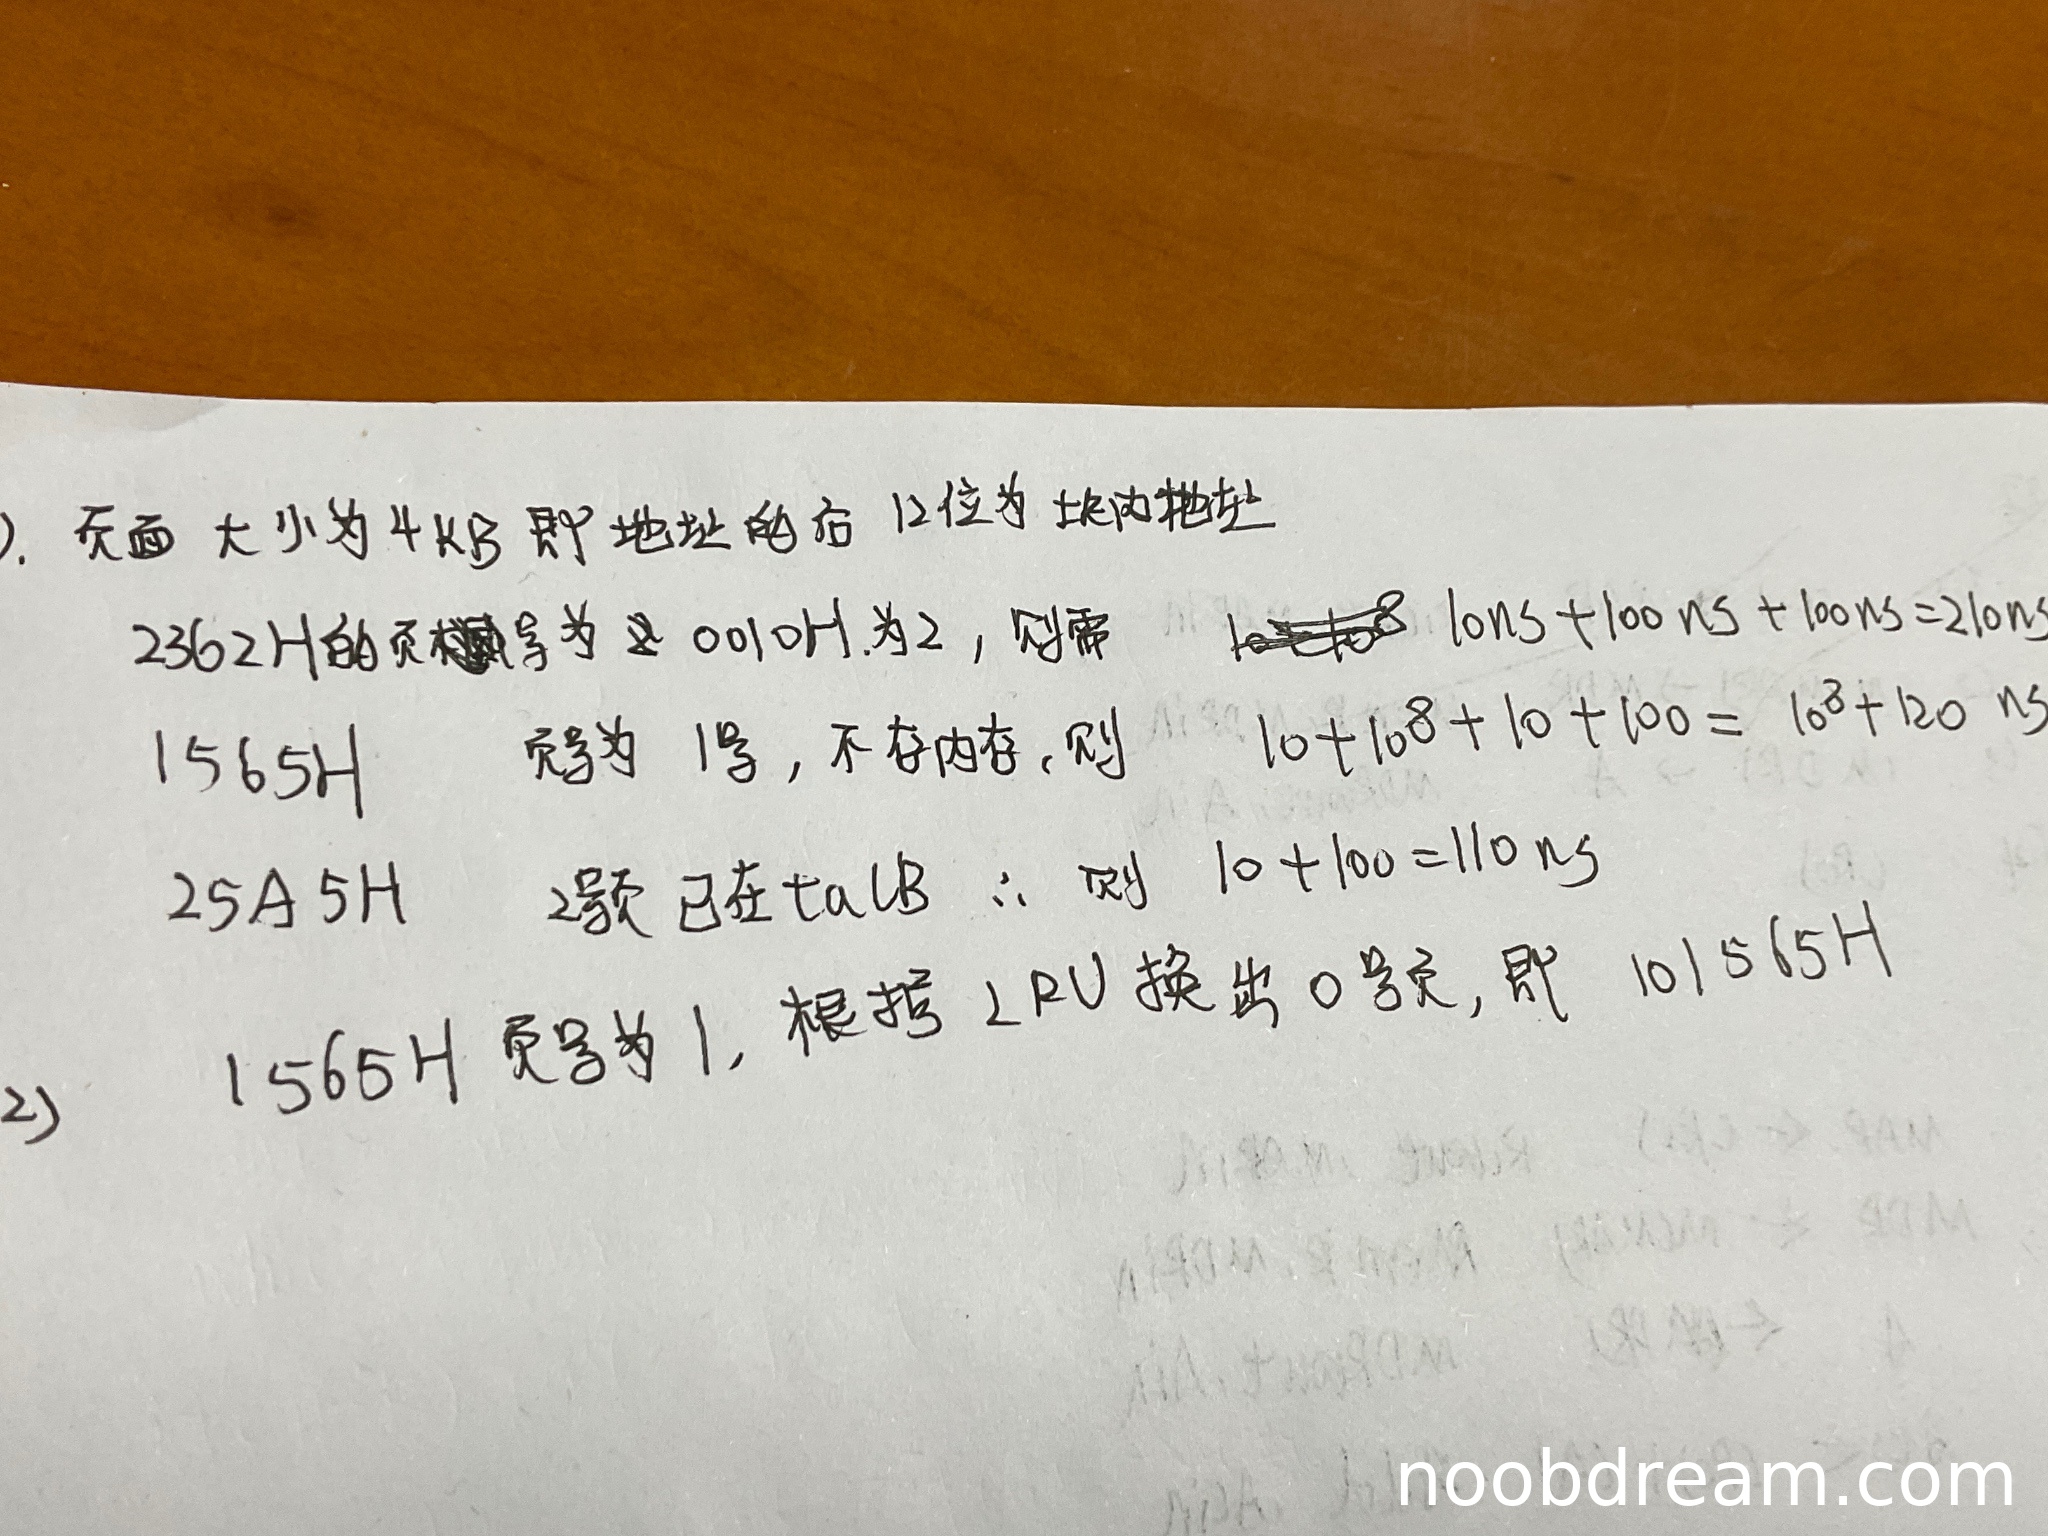 ). 页面大小为4KB 即地址的后12位为块内地址
2362H的页号为 0010H.为2, 则需 10ns+100ns+100ns=210ns
1565H 页号为 1号, 不存内存,则 10+10⁸+10+100= 10⁸+120 ns
25A5H 2号页已在talB ∴ 则 10+100=110ns
2) 1565H 页号为1, 根据LRU换出0号页, 即 101565H
noobdream.com